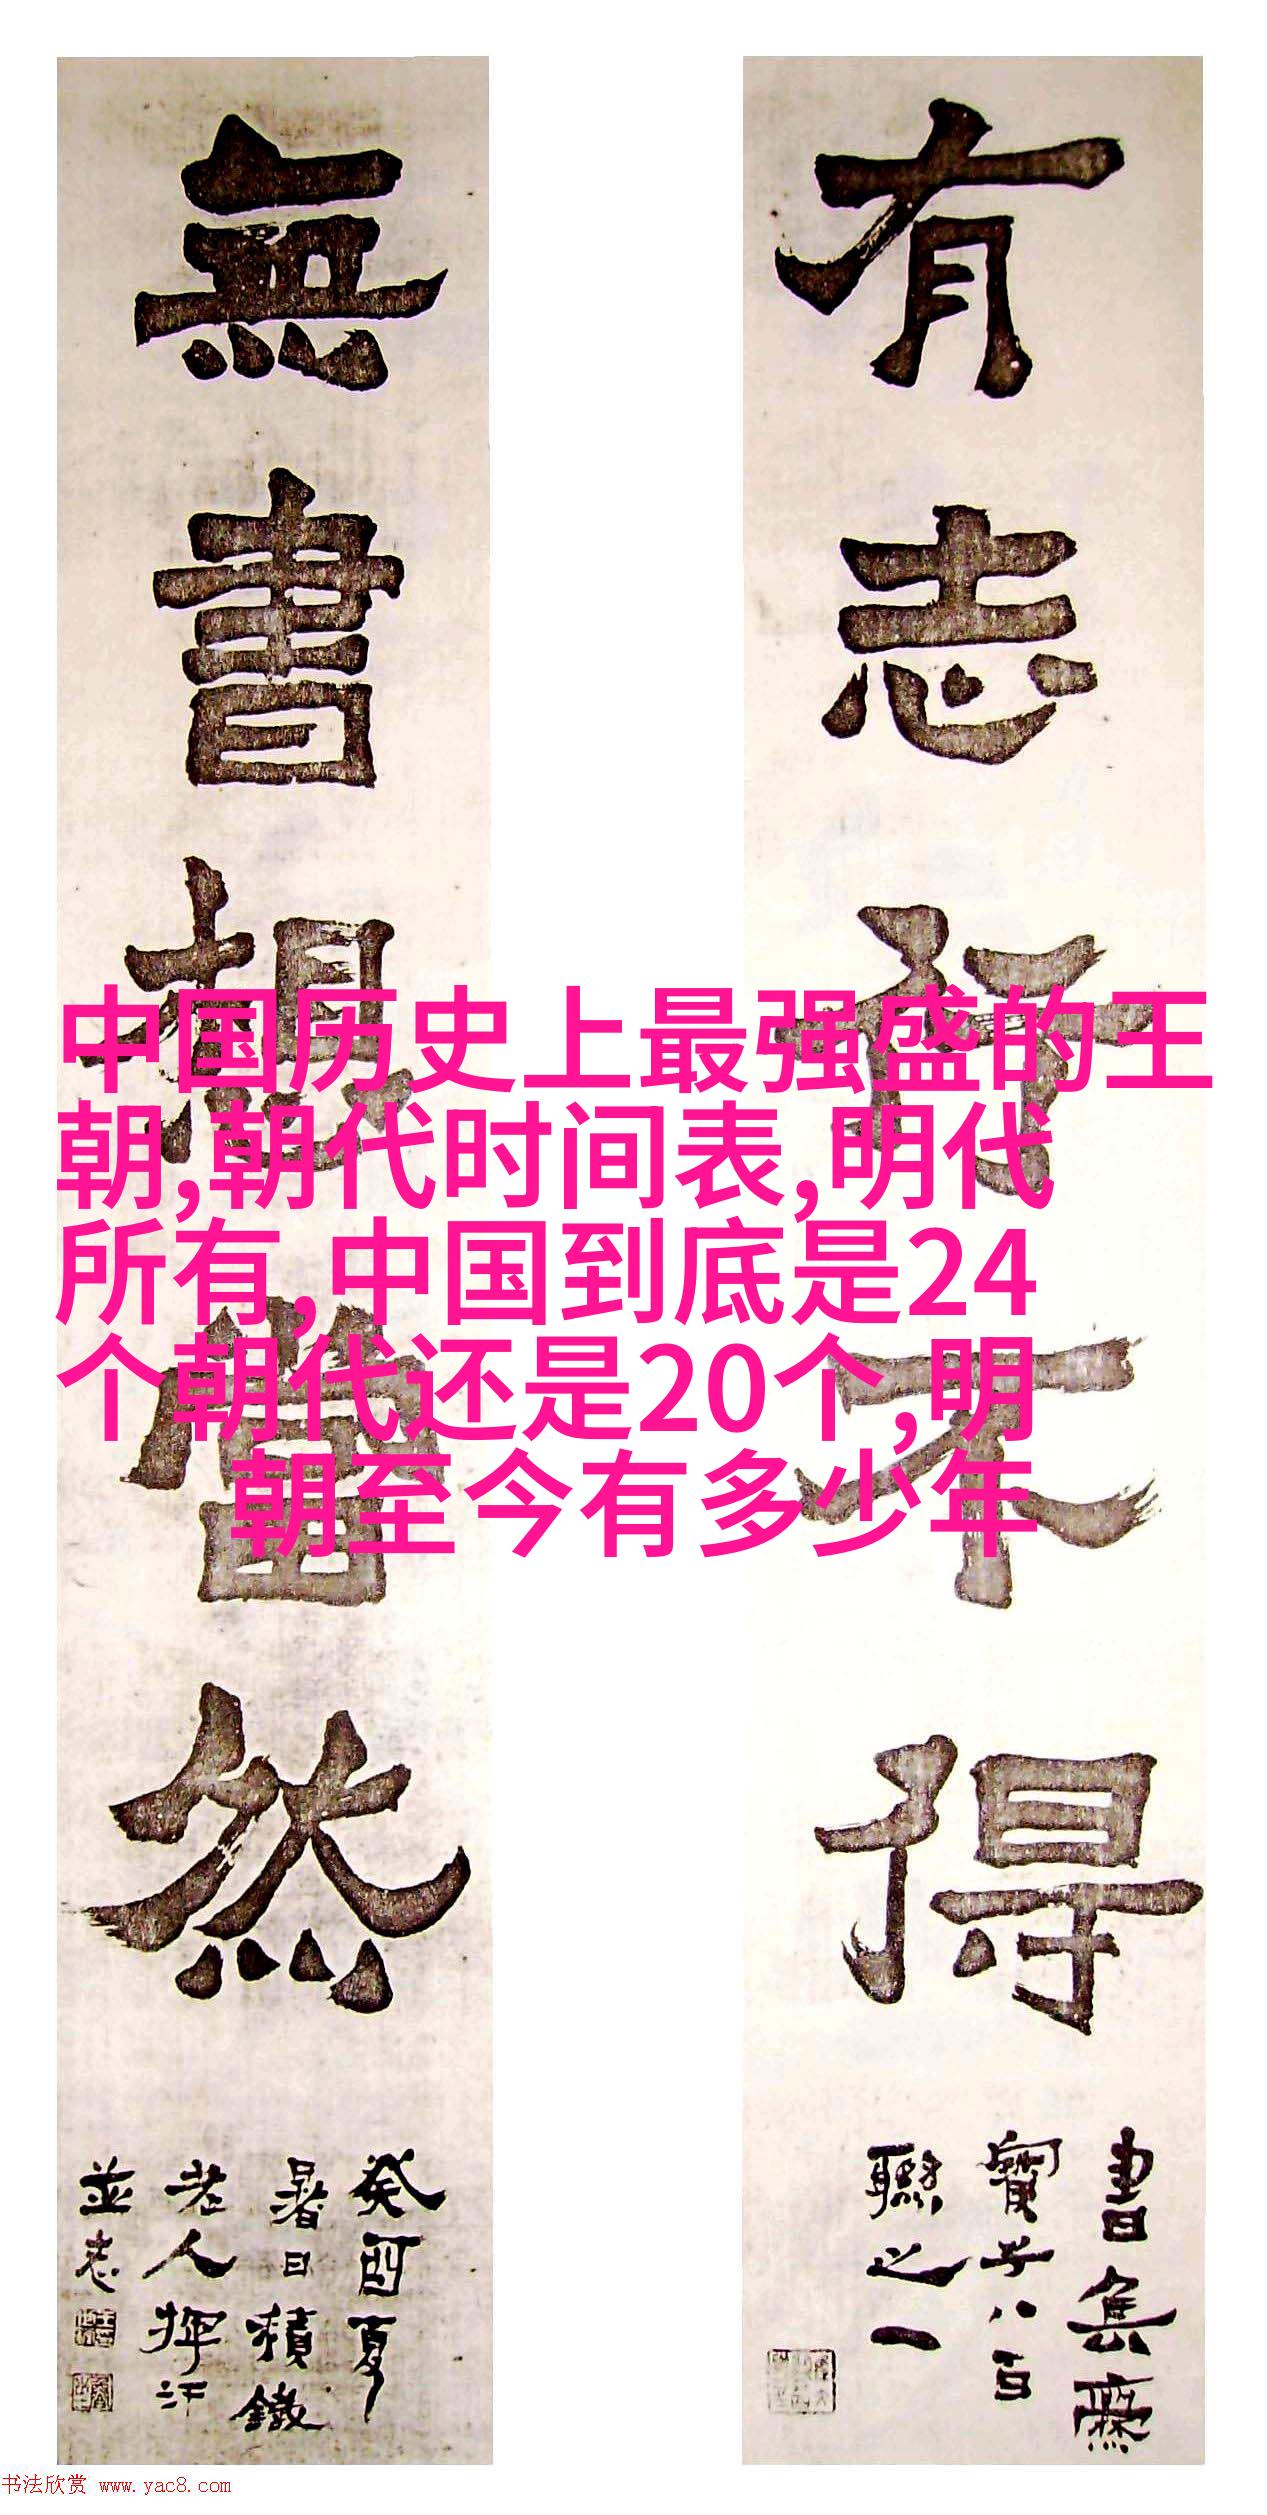 有志行不得
書集齋
寶子八百
聯之一
無書想當然
癸酉夏
暑日積鐵
老人揮汗
並志
中国历史上最强盛的王
朝,朝代时间表,明代
所有,中国到底是24
个朝代还是20个,明
朝至今有多少年
书法欣赏 www.yac8.com